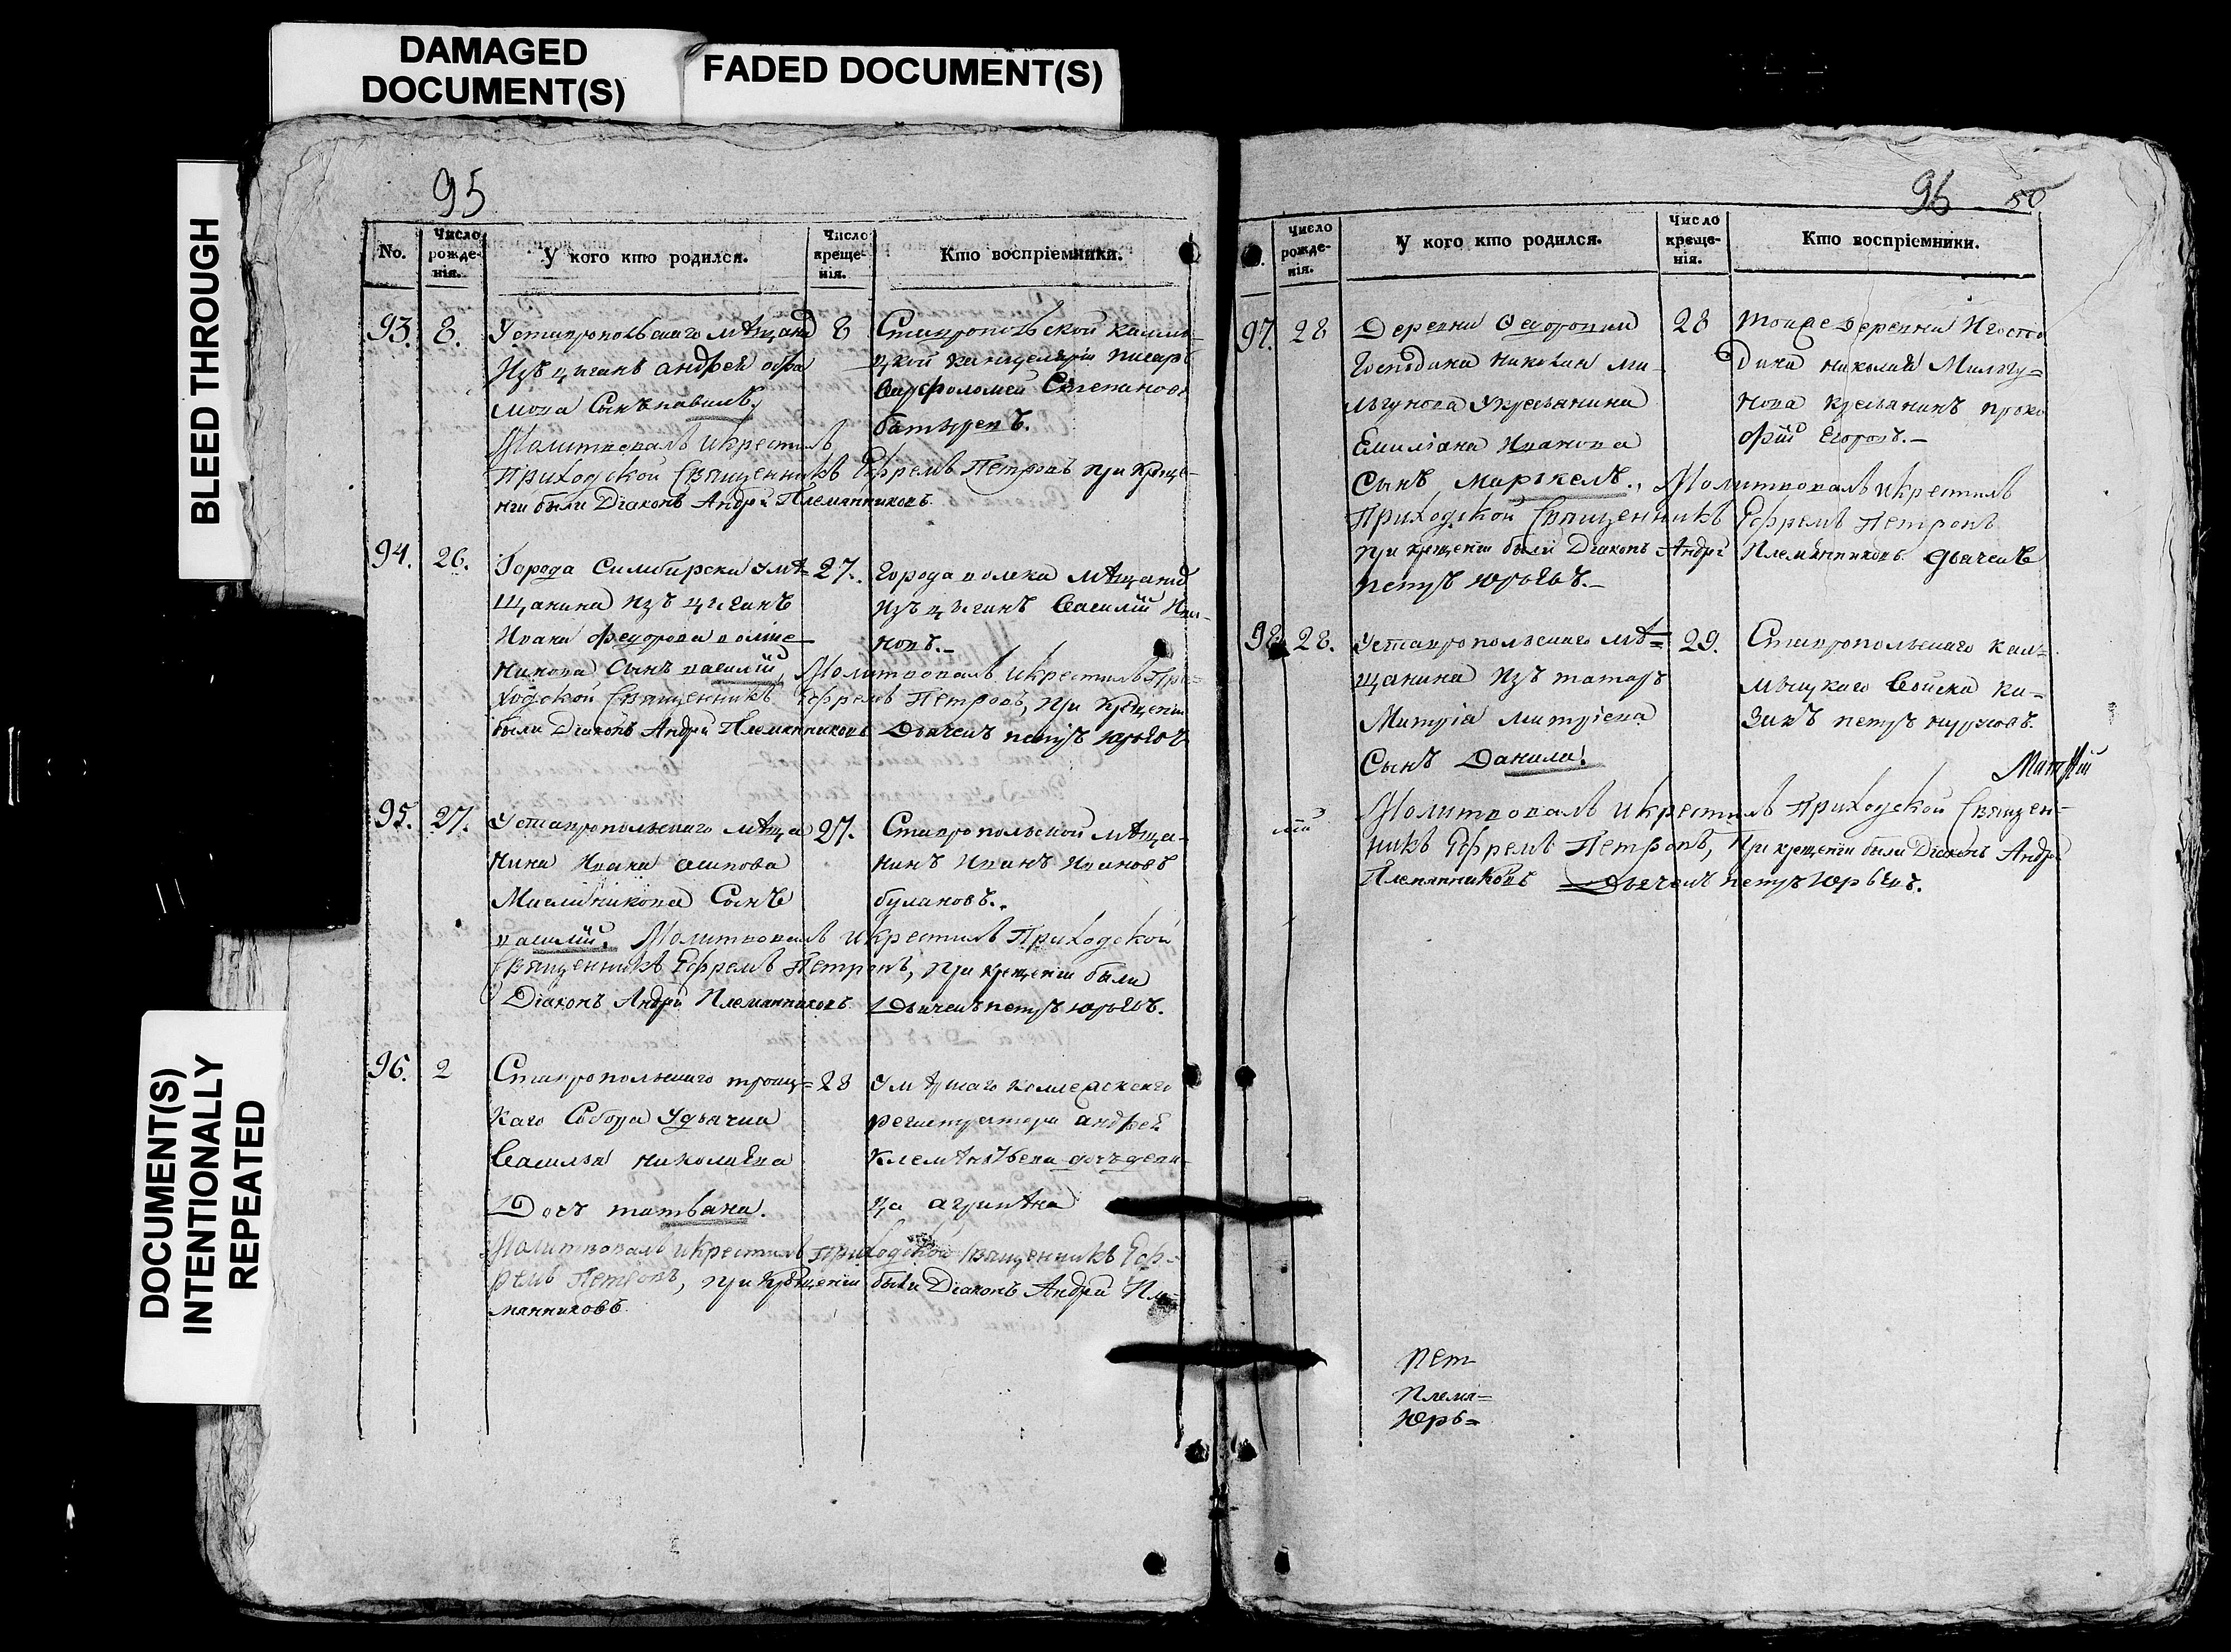 DAMAGED
DOCUMENT(S)
FADED DOCUMENT(S)
BLEED THROUGH
DOCUMENT(S)
INTENTIONALLY
REPEATED
95
No.
Число
рожде-
нія.
У кого кто родился.
Число
креще-
нія.
Кто воспріемники.
93. 8. Уставропольскаго мѣщани
Изъ цыганъ андрея
Сынъ павилъ,
Молитвовалъ икрестилъ
Приходской Священникъ Ефремъ Петровъ при креще-
нги были Діаконъ Андрѣй Племянниковъ.
8 Ставропольской калмы-
цкой канцеляріи писарь
Варфоломей Степановъ
94. 26. Города Симбирска умѣ-
щанина изъ цыганъ
Ивана федорова
Сынъ василій, Молитвовалъ икрестилъ При-
ходской Священникъ Ефремъ Петровъ, при крещеніи
были Діаконъ Андрѣй Племянниковъ Дьячекъ петръ юрьевъ
27. Города мѣщанинъ
изъ цыганъ Василій Ива-
новъ.-
95. 27. Уставропольскаго мѣща
нина Ивана осипова
Масляникова Сынъ
василій. Молитвовалъ икрестилъ Приходской
Священникъ Ефремъ Петровъ, при крещеніи были
Діаконъ Андрѣй Племянниковъ Дьячекъ петръ юрьевъ.
27. Ставропольской мѣща-
нинъ Иванъ Ивановъ
булановъ.
96. 2 Ставропольскаго троиц=
каго Собора Удьячка
Василья николаева
Дочь татьяна.
Молитвовалъ икрестилъ приходской Священникъ Еф-
ремъ Петровъ, при крещеніи были Діаконъ Андрѣй Пле-
мянниковъ
28
регистратора андрея
дочь деви-
ца
96 50
Число
рожде-
нія.
У кого кто родился.
Число
креще-
нія.
Кто воспріемники.
97. 28 Деревни Федоровки
Господина николая ми-
льгунова Укрестьянина
Емиліана Иванова
Сынъ маркелъ., Молитвовалъ икрестилъ
Приходской Священникъ Ефремъ Петровъ
при крещеніи были Діаконъ Андрѣй Племянниковъ Дьячекъ
петръ юрьевъ.-
28 тойже деревни Игоспо
дина николая Мильгу=
нова крестьянинъ проко
фій Егоровъ.-
98. 28. Уставропольскаго мѣ=
щанина Изъ татаръ
Митрія митріева
Сынъ Данила.
29. Ставропольскаго кал=
мыцкаго Войска ка=
закъ петръ
Молитвовалъ икрестилъ Приходской Священ-
никъ Ефремъ Петровъ, При крещеніи были Діаконъ Андрѣй
Племянниковъ Дьячекъ петръ Юрьевъ.
пет
Племя=
Юрь=